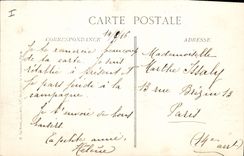 I
CARTE POSTALE
CORRESPONDANCE
ADRESSE
Je remercie beaucoup
de la carte je suis
rétablie à présent
Je pars jeudi à la
campagne.
Je t'envoie de bons
baisers
ta petite amie
Hélène
Mademoiselle
Marthe
13 rue
Paris
(14e arrt)